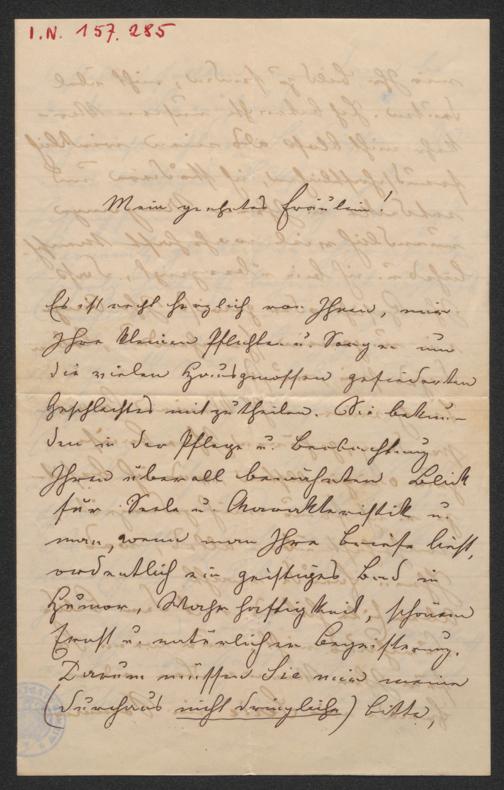 I.N. 157.285
Mein geehrtes Fräulein!
Es ist recht herzlich von Ihnen, mir
Ihre kleinen Pflichten u. Sorgen um
die vielen Hausgenossen gefiederten
Geschlechtes mitzutheilen. Sie bekun-
den in der Pflege u. Beobachtung
Ihren überall bewährten Blick
für Seele u. Charakteristik u.
man, wenn man Ihre Briefe liest,
ordentlich ein geistiges Bad in
Humor, Wahrhaftigkeit, schönem
Ernst u. natürlicher Begeisterung.
Darum müssen Sie mir meine
(durchaus nicht dringliche) Bitte,